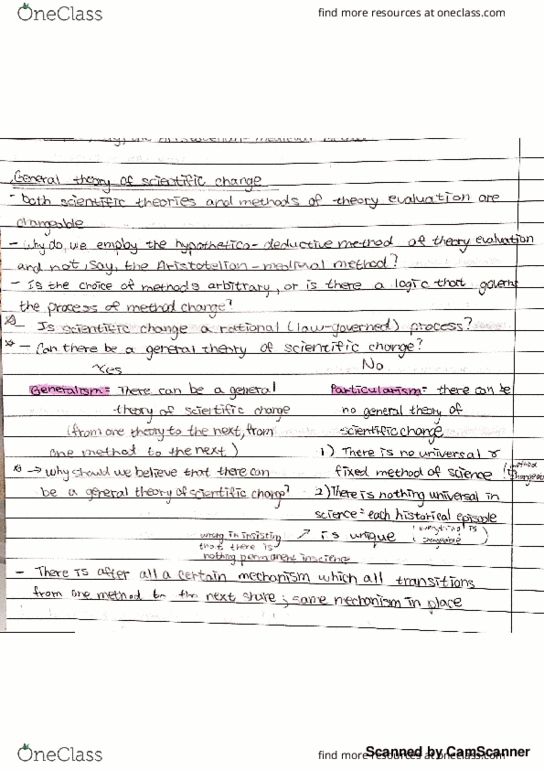 OneClass
find more resources at oneclass.com
General theory of scientific change
- both scientific theories and methods of theory evaluation are
changeable
- Why do we employ the hypothetico-deductive method of theory evaluation
and not, say, the Aristotelian-medieval method?
- Is the choice of methods arbitrary, or is there a logic that governs
the process of method change?
- Is scientific change a rational (law-governed) process?
- Can there be a general theory of scientific change?
Yes No
Generalism: There can be a general
theory of scientific change
(from one theory to the next, from
one method to the next)
→ why should we believe that there can
be a general theory of scientific change?
Particularism: there can be
no general theory of
scientific change
1) There is no universal &
fixed method of science
2) There is nothing universal in
science: each historical episode
is unique (everything is changeable)
wrong in insisting
that there is
nothing permanent in science
- There is after all a certain mechanism which all transitions
from one method to the next share; same mechanism in place
Scanned by CamScanner
OneClass
find more resources at oneclass.com